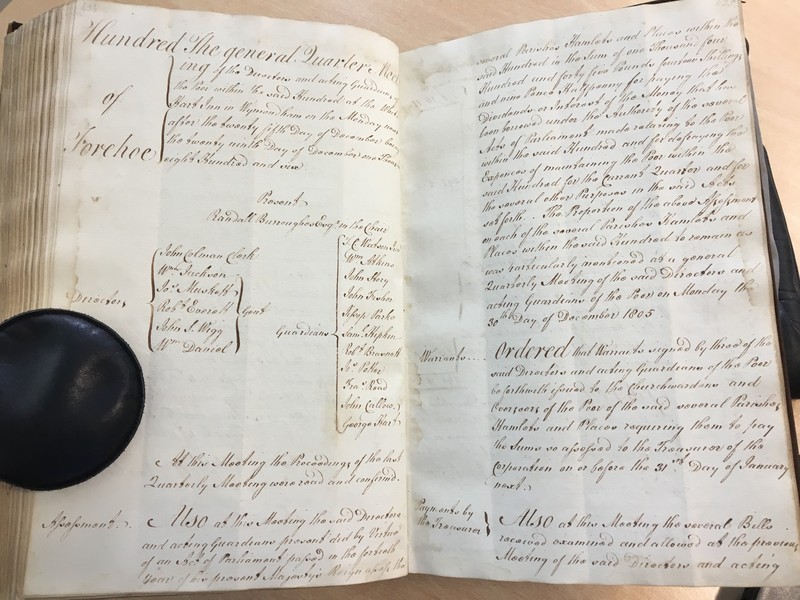 Hundred The general Quarterly Meet
ing of the Directors and acting Guardians of
the Poor within the said Hundred at the White
of
Hart Inn in Wymondham on the Monday next
after the twenty fifth Day of December being
Forehoe
the twenty ninth Day of December one Thousand
eight Hundred and six
Present
Randall Burroughes Esqr. in the Chair
Directors
John Colman Clerk
Wm. Jackson
Jos. Muskett
Robt. Everett
John S. Wigg
Wm. Daniel
Gent
Guardians
Wm. Atkins
John Stery
John Fisher
Joseph Parke
Saml. Stepkin
Robt. Brasnett
Potter
Fras. Read
John Callow
George Hart
At this Meeting the Proceedings of the last
Quarterly Meeting were read and confirmed.
Assessment.
Also at this Meeting the said Directors
and acting Guardians present did by Virtue
of an Act of Parliament passed in the fortieth
Year of his present Majesty's Reign assess the
several Parishes Hamlets and Places within the
said Hundred in the Sum of one Thousand four
Hundred and forty five Pounds fourteen Shillings
and nine Pence Halfpenny for paying the
Dividends or Interest of the Money that has
been borrowed under the Authority of the several
Acts of Parliament made relating to the Poor
within the said Hundred and for defraying the
Expences of maintaining the Poor within the
said Hundred for the Current Quarter and for
the several other Purposes in the said Acts
set forth. The Proportion of the above Assessment
on each of the several Parishes Hamlets and
Places within the said Hundred to remain as
was particularly mentioned at a general
Quarterly Meeting of the said Directors and
acting Guardians of the Poor on Monday the
30th Day of December 1805.
Warrants....
Ordered that Warrants signed by three of the
said Directors and acting Guardians of the Poor
be forthwith issued to the Churchwardens and
Overseers of the Poor of the said several Parishes
Hamlets and Places requiring them to pay
the Sums so assessed to the Treasurer of the
Corporation on or before the 31st Day of January
next.
Payments by
the Treasurer
Also at this Meeting the several Bills
received examined and allowed at the previous
Meeting of the said Directors and acting